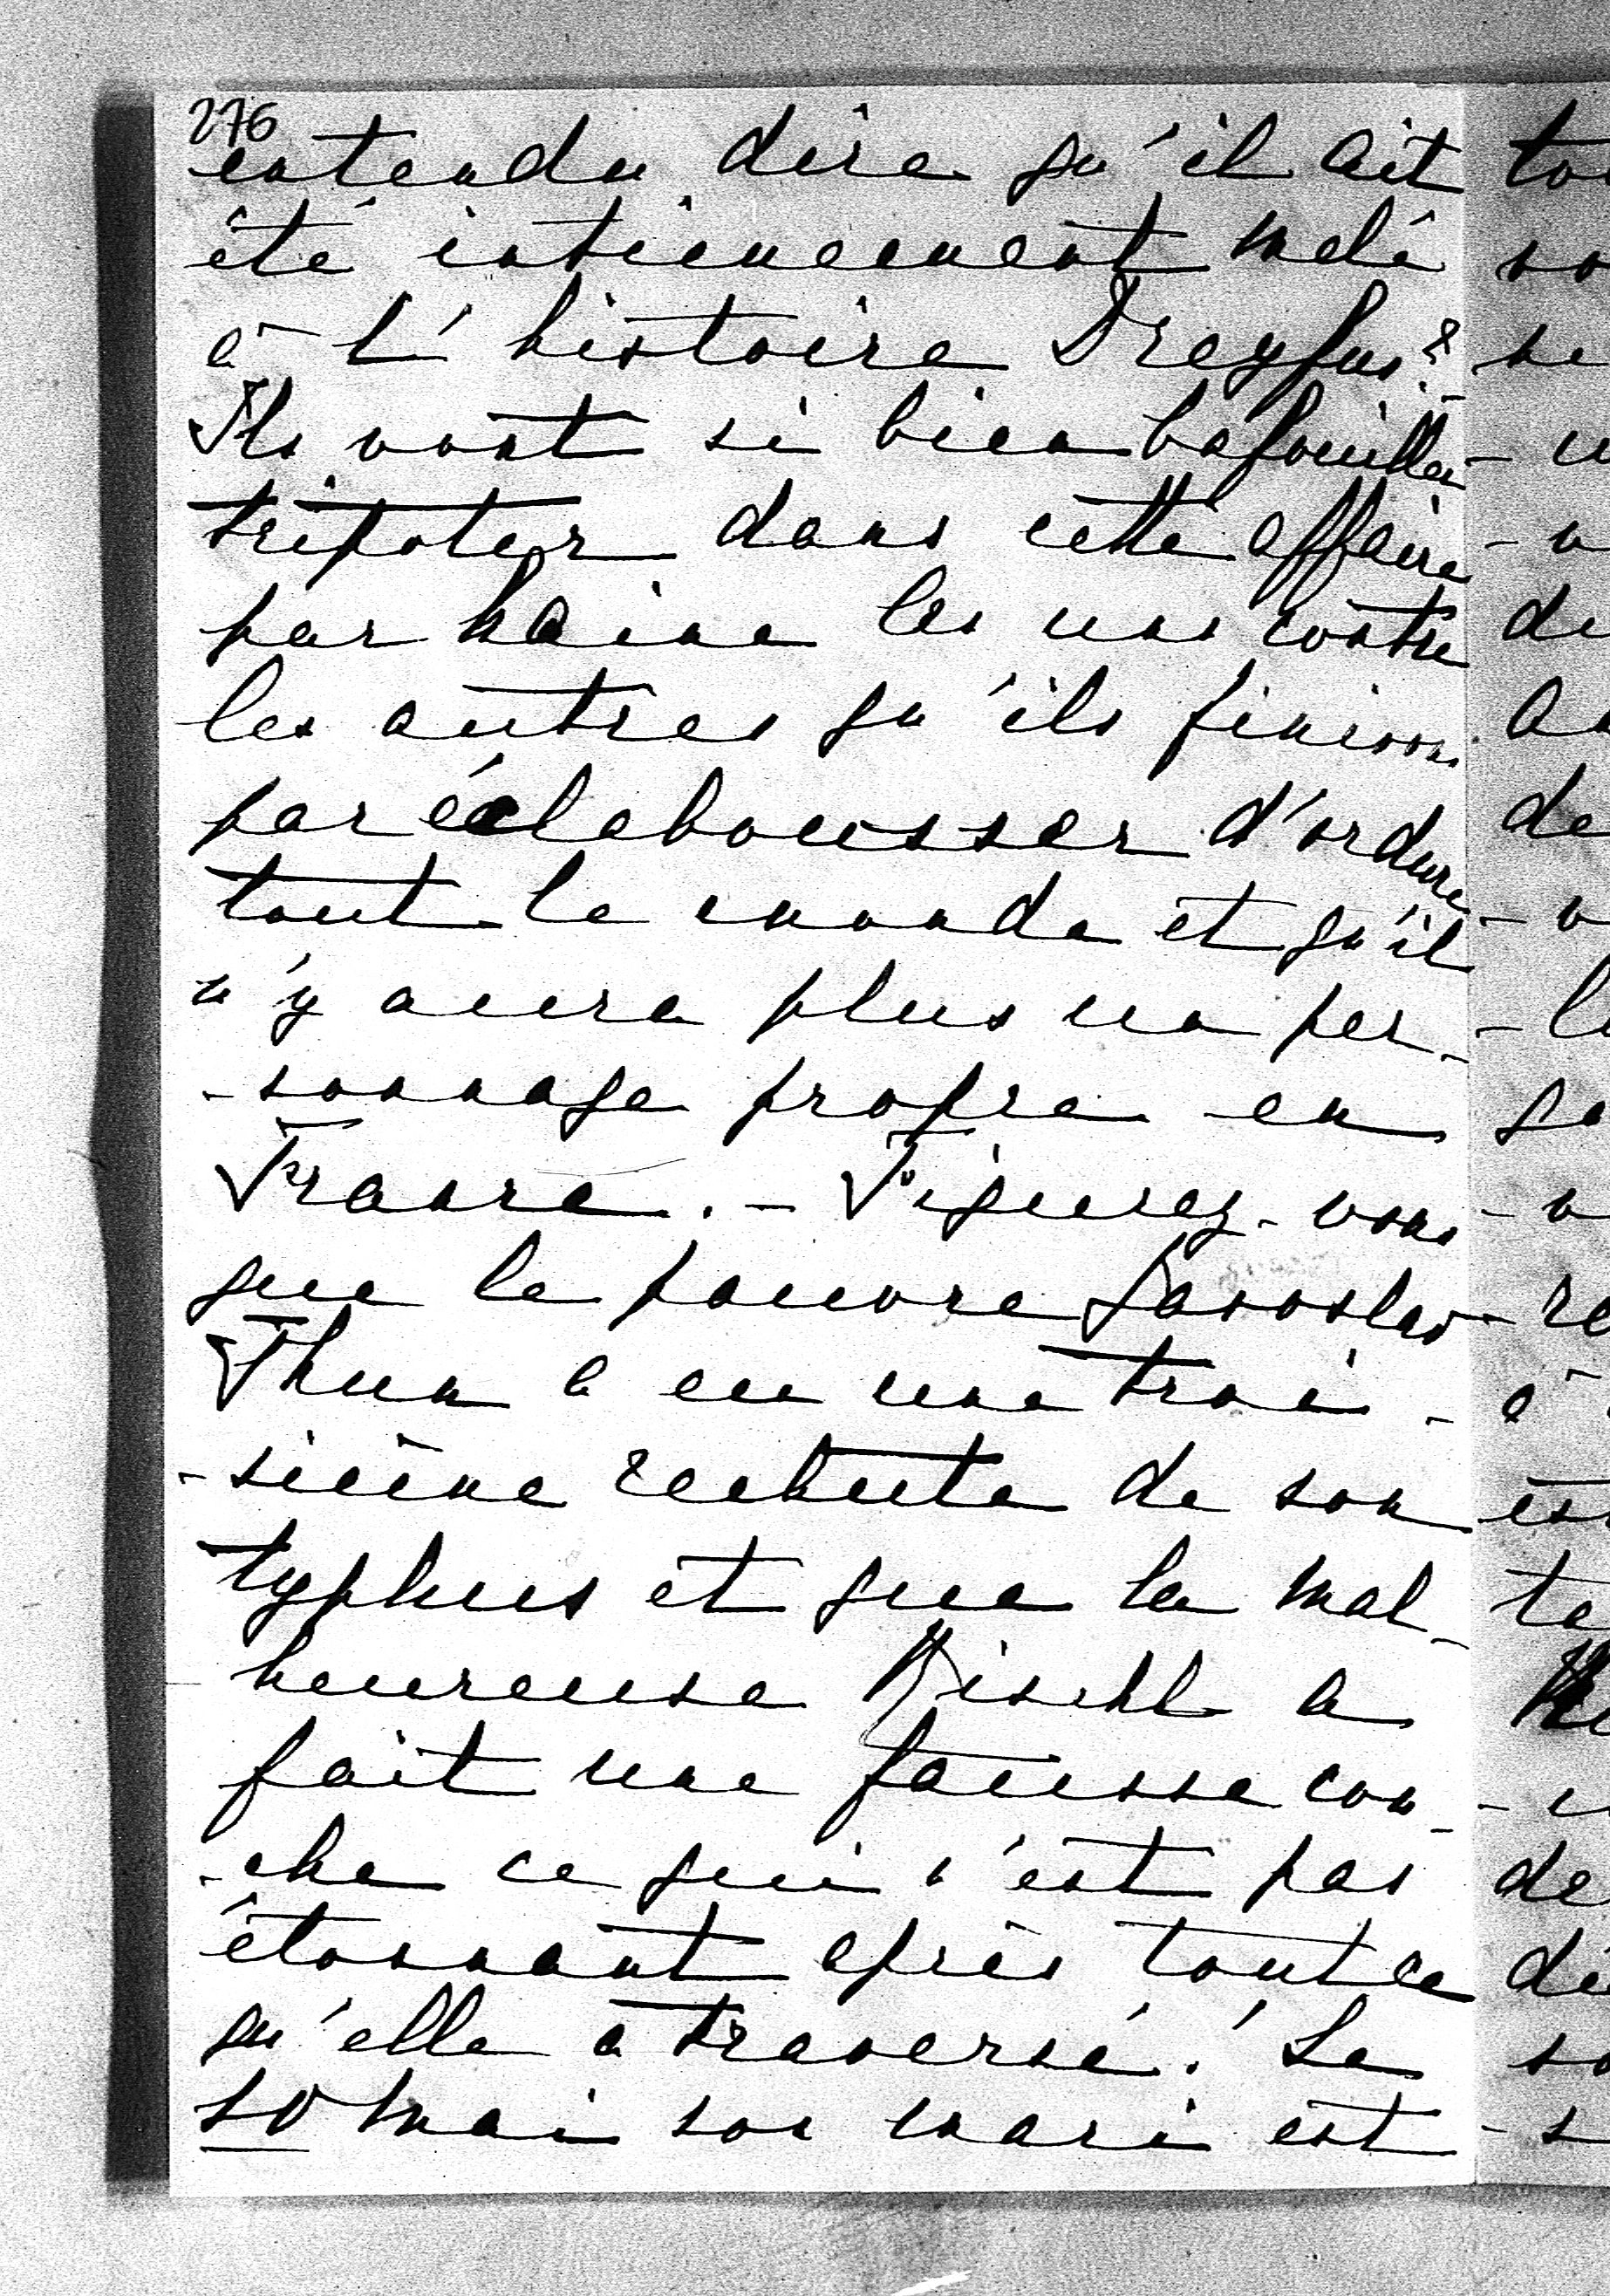 276
entendu dire qu'il ait
été intimement mêlé
à l'histoire Dreyfus?
Ils vont si bien bafouiller
tripoter dans cette affaire
par haine les uns contre
les autres qu'ils finiront
par éclabousser d'ordure
tout le monde et qu'il
n'y aura plus un per-
-sonnage propre en
France. - Figurez-vous
que le pauvre Jaroslav
Thun a eu une troi-
-sième rechute de son
typhus et que la mal-
heureuse Mischl a
fait une fausse cou-
-che ce qui n'est pas
étonnant après tout ce
qu'elle a traversé! Le
10 mai son mari est